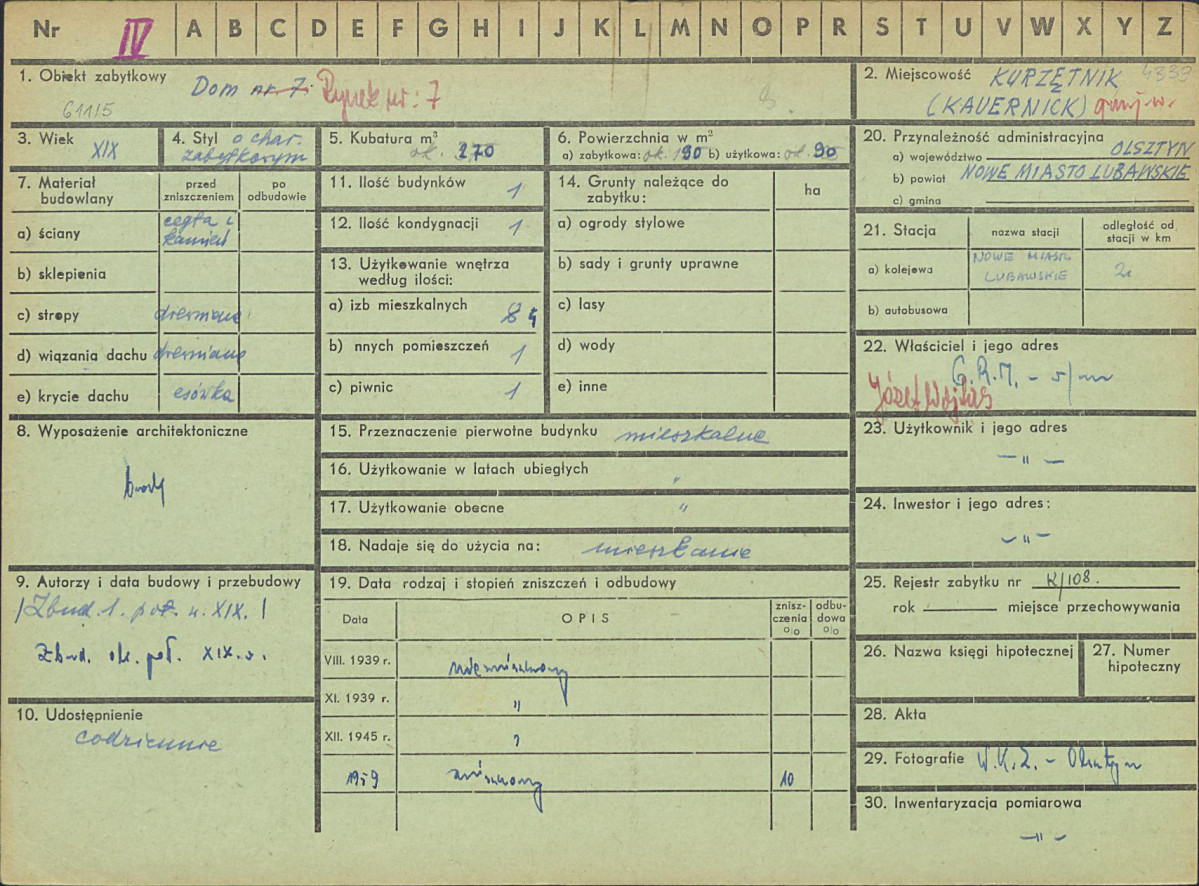 Nr IV A B C D E F G H I J K L M N O P R S T U V W X Y Z
1. Obiekt zabytkowy Dom nr 7. Rynek nr: 7
61115
2. Miejscowość KURZĘTNIK 4333
(KAUERNICK)
3. Wiek XIX
4. Styl o char. zabytkowym
5. Kubatura m³
ok. 270
6. Powierzchnia w m²
a) zabytkowa: ok. 190 b) użytkowa: ok. 90
20. Przynależność administracyjna
a) województwo OLSZTYN
b) powiat NOWE MIASTO LUBAWSKIE
c) gmina
7. Materiał budowlany
przed zniszczeniem
po odbudowie
a) ściany cegła i kamień
b) sklepienia
c) stropy drewniane
d) wiązania dachu drewniane
e) krycie dachu esówka
11. Ilość budynków 1
12. Ilość kondygnacji 1
13. Użytkowanie wnętrza według ilości:
a) izb mieszkalnych 8 4
b) nnych pomieszczeń 1
c) piwnic 1
14. Grunty należące do zabytku:
ha
a) ogrody stylowe
b) sady i grunty uprawne
c) lasy
d) wody
e) inne
21. Stacja
nazwa stacji
odległość od stacji w km
a) kolejowa NOWE MIASTO LUBAWSKIE 2
b) autobusowa
22. Właściciel i jego adres
G.R.N. - w/m
Józef Wojtas
23. Użytkownik i jego adres
— " —
24. Inwestor i jego adres:
— " —
8. Wyposażenie architektoniczne
15. Przeznaczenie pierwotne budynku mieszkalne
16. Użytkowanie w latach ubiegłych "
17. Użytkowanie obecne "
18. Nadaje się do użycia na: mieszkanie
9. Autorzy i data budowy i przebudowy
/Zbud. 1. poł. w. XIX. /
Zbud. ok. poł. XIX. w.
10. Udostępnienie
codziennie
19. Data rodzaj i stopień zniszczeń i odbudowy
Data
OPIS
zniszczenia o/o
odbudowa o/o
VIII. 1939 r. niezniszczony
XI. 1939 r. "
XII. 1945 r. ?
1959 zniszczony 10
25. Rejestr zabytku nr K/108.
rok miejsce przechowywania
26. Nazwa księgi hipotecznej
27. Numer hipoteczny
28. Akta
29. Fotografie W.K.Z. - Olsztyn
30. Inwentaryzacja pomiarowa
— " —